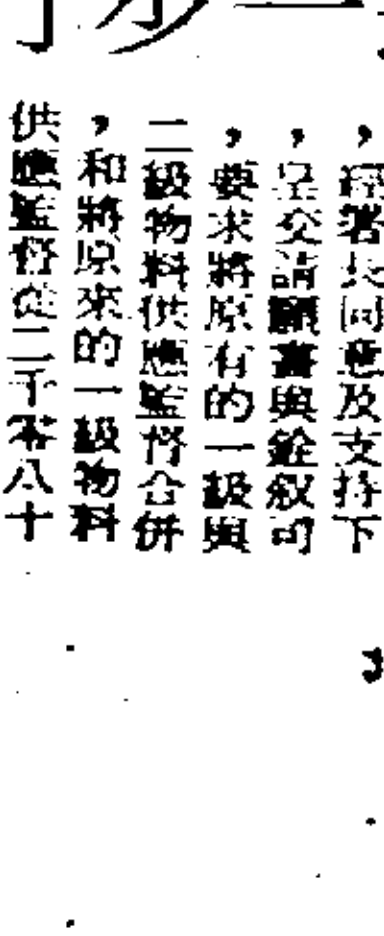 ，經署共同意及支持下
，呈交請願書與銓叙司
，要求將原有的一級與
二級物料供應監督合併
，和將原來的一級物料
供應監督從二千零八十